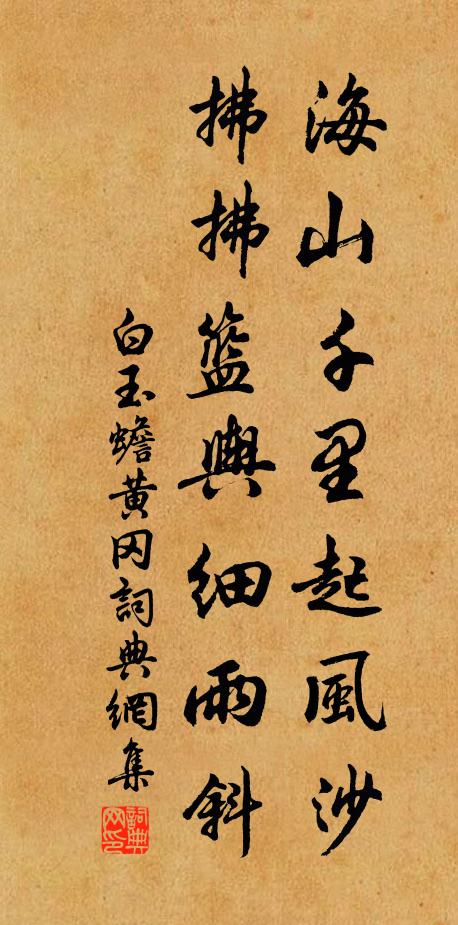 海山千里起風沙
拂拂籃輿細雨斜
白玉蟾黄冈詞典網集
詞典网印